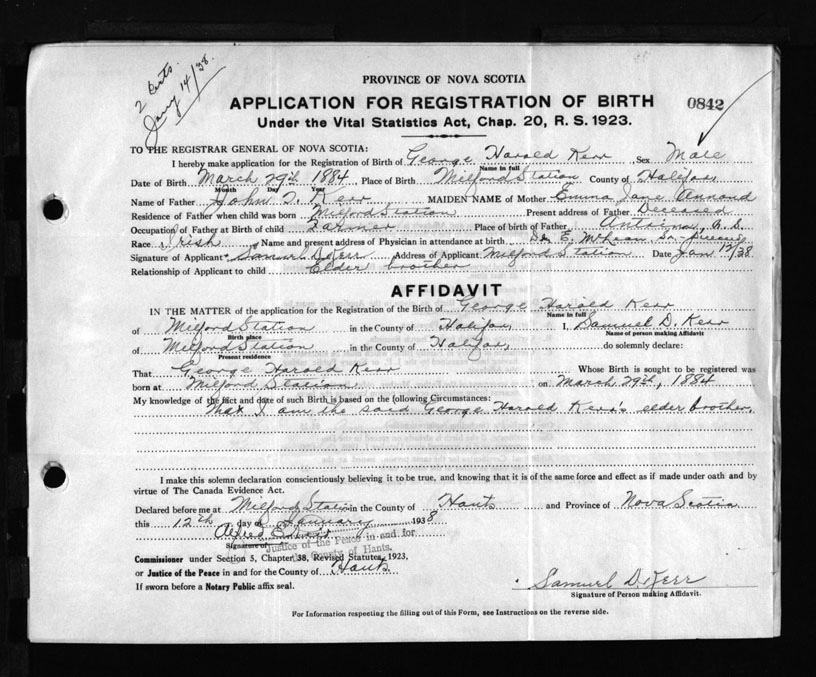 2 Certs.
Jany 14/38.
PROVINCE OF NOVA SCOTIA
APPLICATION FOR REGISTRATION OF BIRTH
0842
Under the Vital Statistics Act, Chap. 20, R. S. 1923.
TO THE REGISTRAR GENERAL OF NOVA SCOTIA:
I hereby make application for the Registration of Birth of George Harold Kerr Sex Male
Name in full
Date of Birth March 29th 1884, Place of Birth Milford Station County of Halifax
Month Day Year
Name of Father John T. Kerr MAIDEN NAME of Mother Emma Jane Annand
Residence of Father when child was born Milford Station Present address of Father Deceased
Occupation of Father at Birth of child Farmer Place of birth of Father
Race Irish Name and present address of Physician in attendance at birth Dr. E. McLean
Signature of Applicant Samuel D. Kerr Address of Applicant Milford Station Date Jan 12/38
Relationship of Applicant to child Elder brother
AFFIDAVIT
IN THE MATTER of the application for the Registration of the Birth of George Harold Kerr
Name in full
of Milford Station in the County of Halifax I, Samuel D. Kerr
Birth place Name of person making Affidavit
of Milford Station in the County of Halifax, do solemnly declare:
Present residence
That George Harold Kerr Whose Birth is sought to be registered was
born at Milford Station on March 29th, 1884
My knowledge of the fact and date of such Birth is based on the following Circumstances:
That I am the said George Harold Kerr's elder brother,
I make this solemn declaration conscientiously believing it to be true, and knowing that it is of the same force and effect as if made under oath and by
virtue of The Canada Evidence Act.
Declared before me at Milford Station in the County of Hants and Province of Nova Scotia
this 12th day of January 1938
Alfred
Signature of Justice of the Peace in and for
County of Hants.
Commissioner under Section 5, Chapter 38, Revised Statutes, 1923,
or Justice of the Peace in and for the County of Hants
If sworn before a Notary Public affix seal.
Samuel D. Kerr
Signature of Person making Affidavit.
For Information respecting the filling out of this Form, see Instructions on the reverse side.